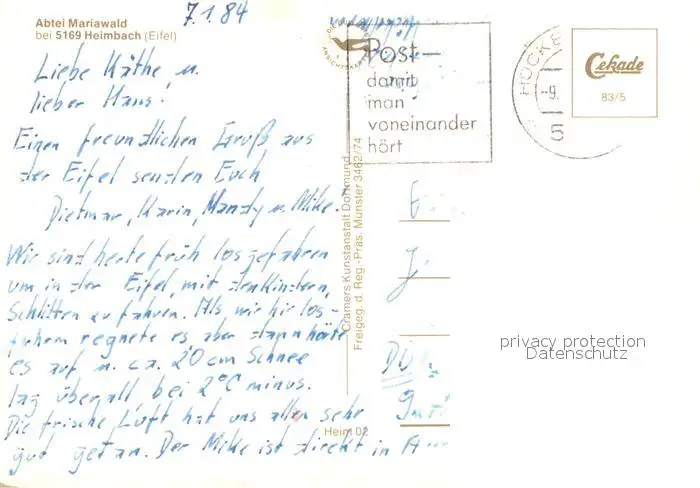 7.1.84
Abtei Mariawald
bei 5169 Heimbach (Eifel)
Liebe Käthe, u.
lieber Hans!
Einen freundlichen Gruß aus
der Eifel senden Euch
Dietmar, Karin, Mandy u. Mike.
Wir sind heute früh losgefahren
um in der Eifel, mit den Kindern,
Schlitten zu fahren. Als wir hir los-
fuhren regnete es, aber dann hörte
es auf u. ca. 20 cm Schnee
lag überall bei 2°C minus.
Die frische Luft hat uns allen sehr
gut getan. Der Mike ist direkt in
Heim 02
Cramers Kunstanstalt Dortmund
Freigeg. d. Reg.-Präs. Münster 3462/74
Post-
damit
man
voneinander
hört
HOCKE
-9.
5
Cekade
83/5
privacy protection
Datenschutz